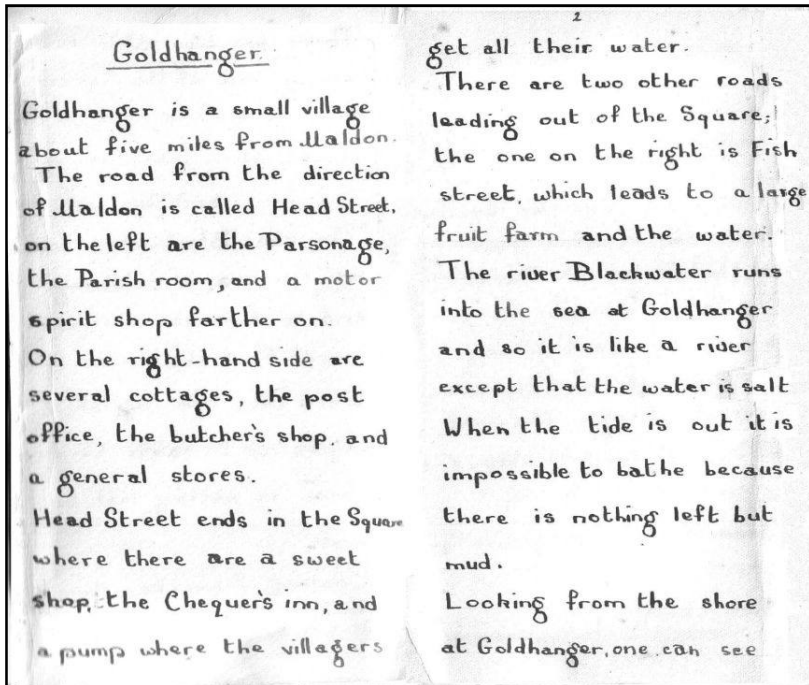 Goldhanger.
Goldhanger is a small village
about five miles from Maldon.
The road from the direction
of Maldon is called Head Street,
on the left are the Parsonage,
the Parish room, and a motor
spirit shop farther on.
On the right-hand side are
several cottages, the post
office, the butcher's shop, and
a general stores.
Head Street ends in the Square
where there are a sweet
shop, the Chequer's inn, and
a pump where the villagers
2
get all their water.
There are two other roads
leading out of the Square;
the one on the right is Fish
street, which leads to a large
fruit farm and the water.
The river Blackwater runs
into the sea at Goldhanger
and so it is like a river
except that the water is salt
When the tide is out it is
impossible to bathe because
there is nothing left but
mud.
Looking from the shore
at Goldhanger, one can see